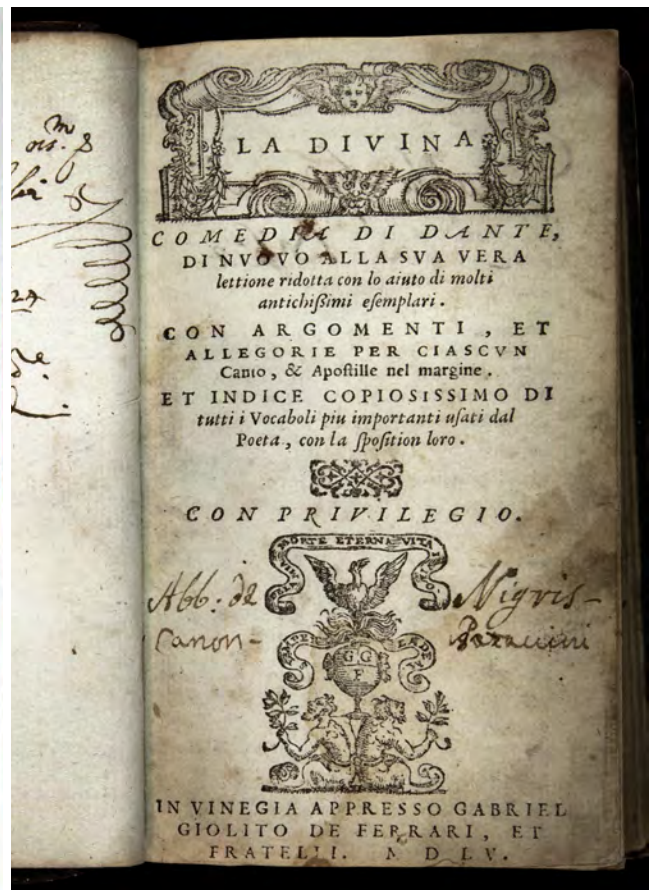 LA DIVINA
COMEDIA DI DANTE,
DI NVOVO ALLA SVA VERA
lettione ridotta con lo aiuto di molti
antichißimi eſemplari.
CON ARGOMENTI, ET
ALLEGORIE PER CIASCVN
Canto, & Apoſtille nel margine.
ET INDICE COPIOSISSIMO DI
tutti i Vocaboli piu importanti uſati dal
Poeta, con la ſpoſition loro.
CON PRIVILEGIO.
MORTE ETERNA VITA
Abb: de Nigris-
Canon-
SEMPER
G G
F
IN VINEGIA APPRESSO GABRIEL
GIOLITO DE FERRARI, ET
FRATELLI. M D LV.
24
de